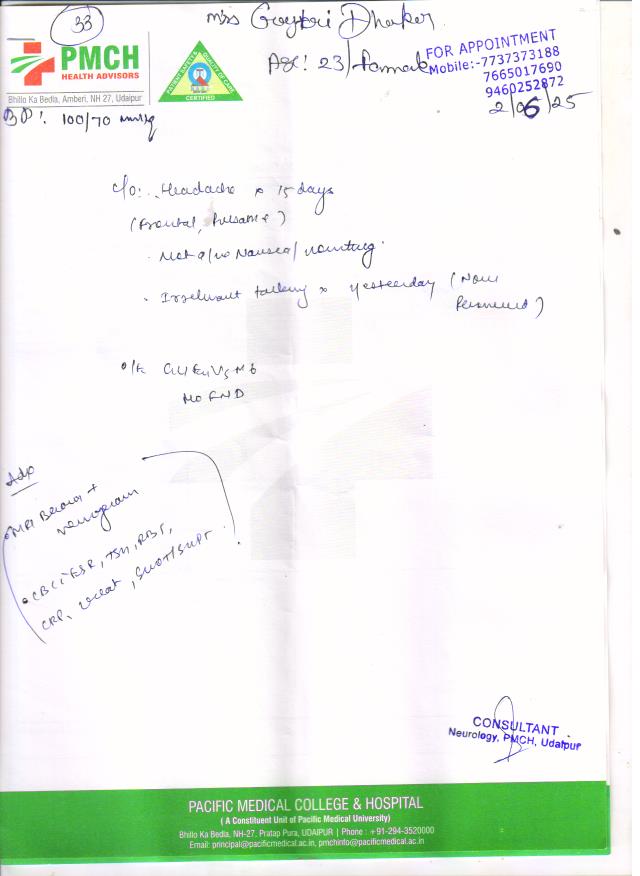 33
Miss Gayatri Dhaker
PMCH
HEALTH ADVISORS
Bhillo Ka Bedla, Amberi, NH 27, Udaipur
PATIENT SAFETY & QUALITY OF CARE
CERTIFIED
Age: 23/Female
FOR APPOINTMENT
Mobile:-7737373188
7665017690
9460252872
2/06/25
BP: 100/70 mmHg
c/o: Headache x 15 days
(Frontal, Pulsatile)
Nausea/vomiting
Irrelevant talking x yesterday (Now
O/E
No FND
Adv
MRI Brain +
Venogram
CBC ESR, TSH, RBS,
CRP, SGOT/SGPT
CONSULTANT
Neurology, PMCH, Udaipur
PACIFIC MEDICAL COLLEGE & HOSPITAL
( A Constituent Unit of Pacific Medical University)
Bhillo Ka Bedla, NH-27, Pratap Pura, UDAIPUR | Phone : +91-294-3520000
Email: principal@pacificmedical.ac.in, pmchinfo@pacificmedical.ac.in